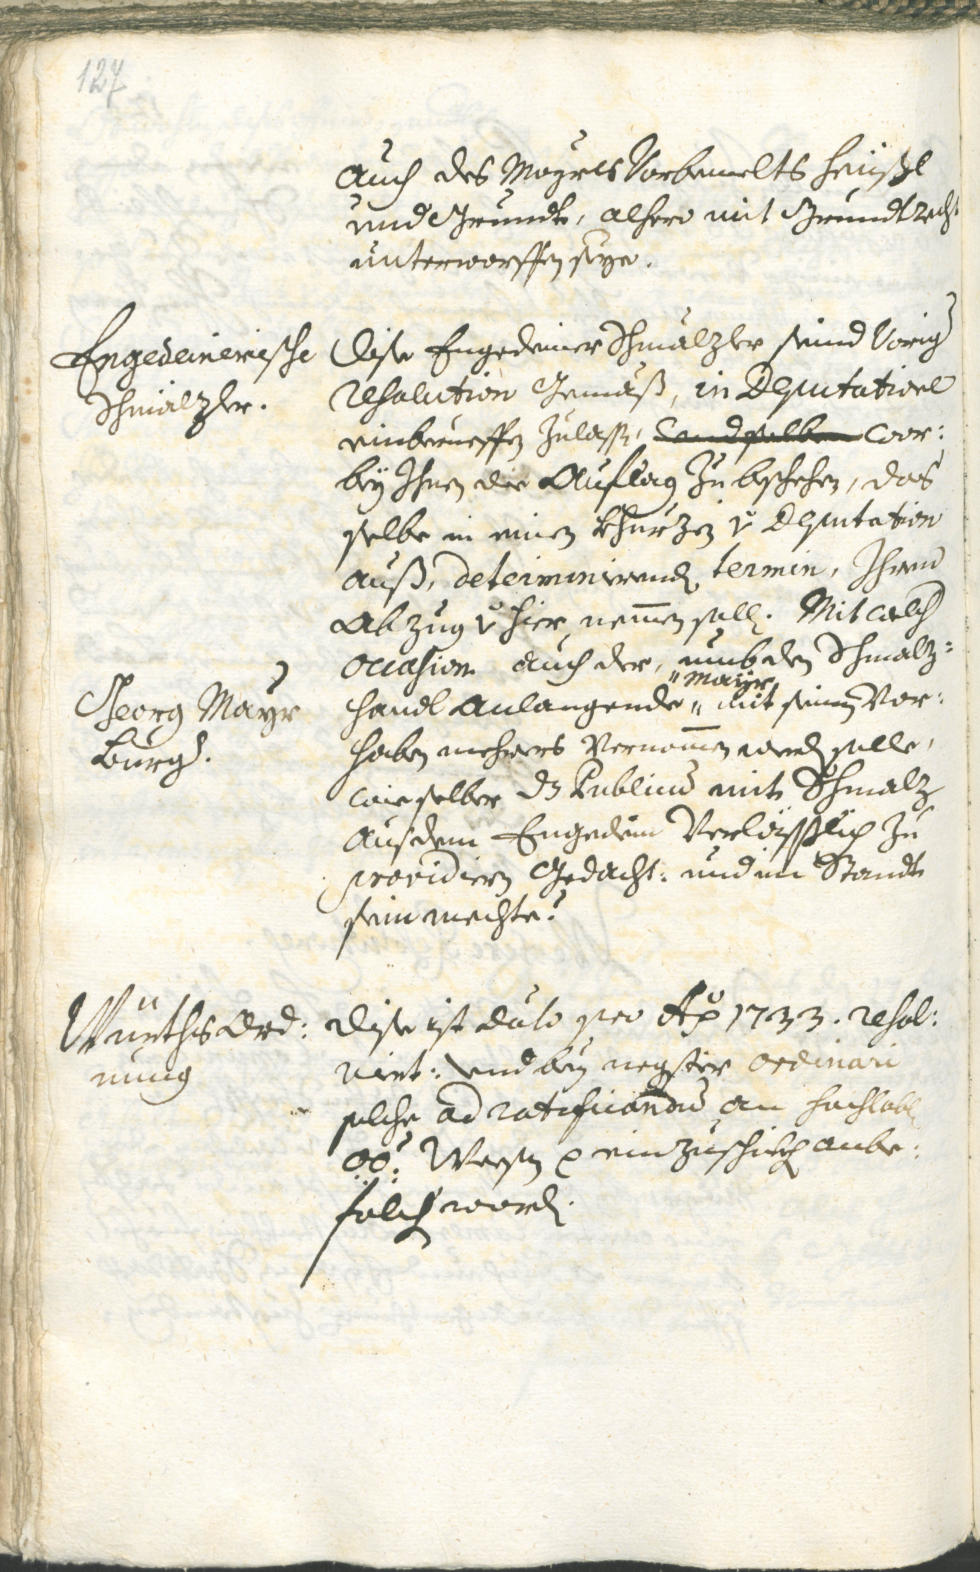 127
auch des Mayrls Vorbemelts heüßl
und Grundt, alhero mit Grundtrecht
unterworffen seye.
Engedeinerische
Schmälzler.
Dise Engedeiner Schmälzler seind Vorig
resolution Gemäß, in Deputation
einberueffen zulassen, wor:
bey Ihnen die Auflag zu beschehen, das
selbe in einen khurzen Deputation
auß, determinirenden termin, Ihren
Abzug hier nemmen sollen. Mit welch
occasion auch der, umb den Schmalz=
Georg Mayr
Burg:
handl anlangende " Mayr " mit seinem Vor:
haben mehrers Vernommen werden solle,
wie selber dz Publicum mit Schmalz
aus dem Engedein Verläßlich zu
providiern Gedacht: und im Standt
sein mechte?
Würths Ord:
nung
Dise ist dato pro Ao 1733. resol:
viert: und bey negster ordinari
solche ad ratificandum an hochlobl
oö: Weesen einzuschikhen anbe:
folchen worden.